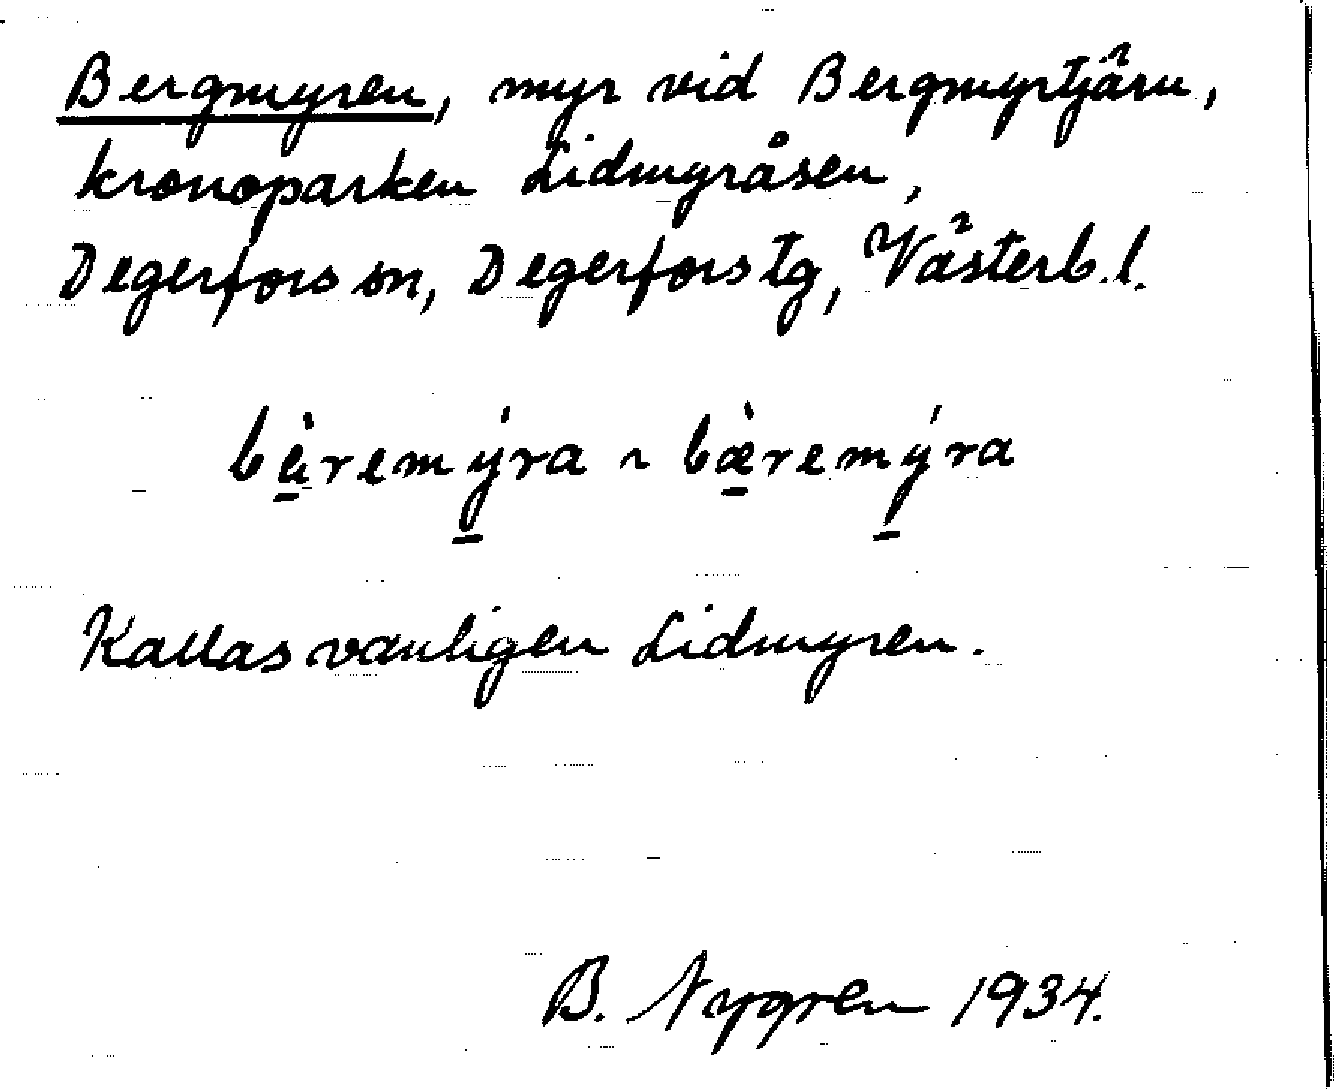 Bergmyren, myr vid Bergmyrtjärn,
kronoparken Lidmyråsen,
Degerfors sn, Degerfors tg, Västerb. l.
bà̱remý̱ra ~ bæ̱̀remý̱ra
Kallas vanligen Lidmyren.
B. Nygren 1934.